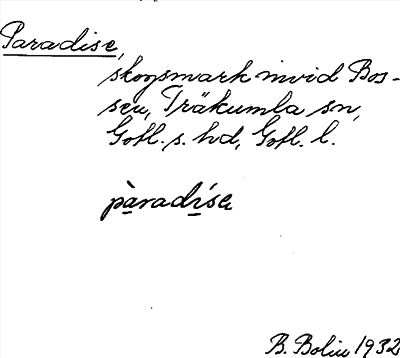 Paradise,
skogsmark invid Bos-
seu, Träkumla sn,
Gotl. s. hd, Gotl. l.
pàradísɐ
B. Bolin 1932